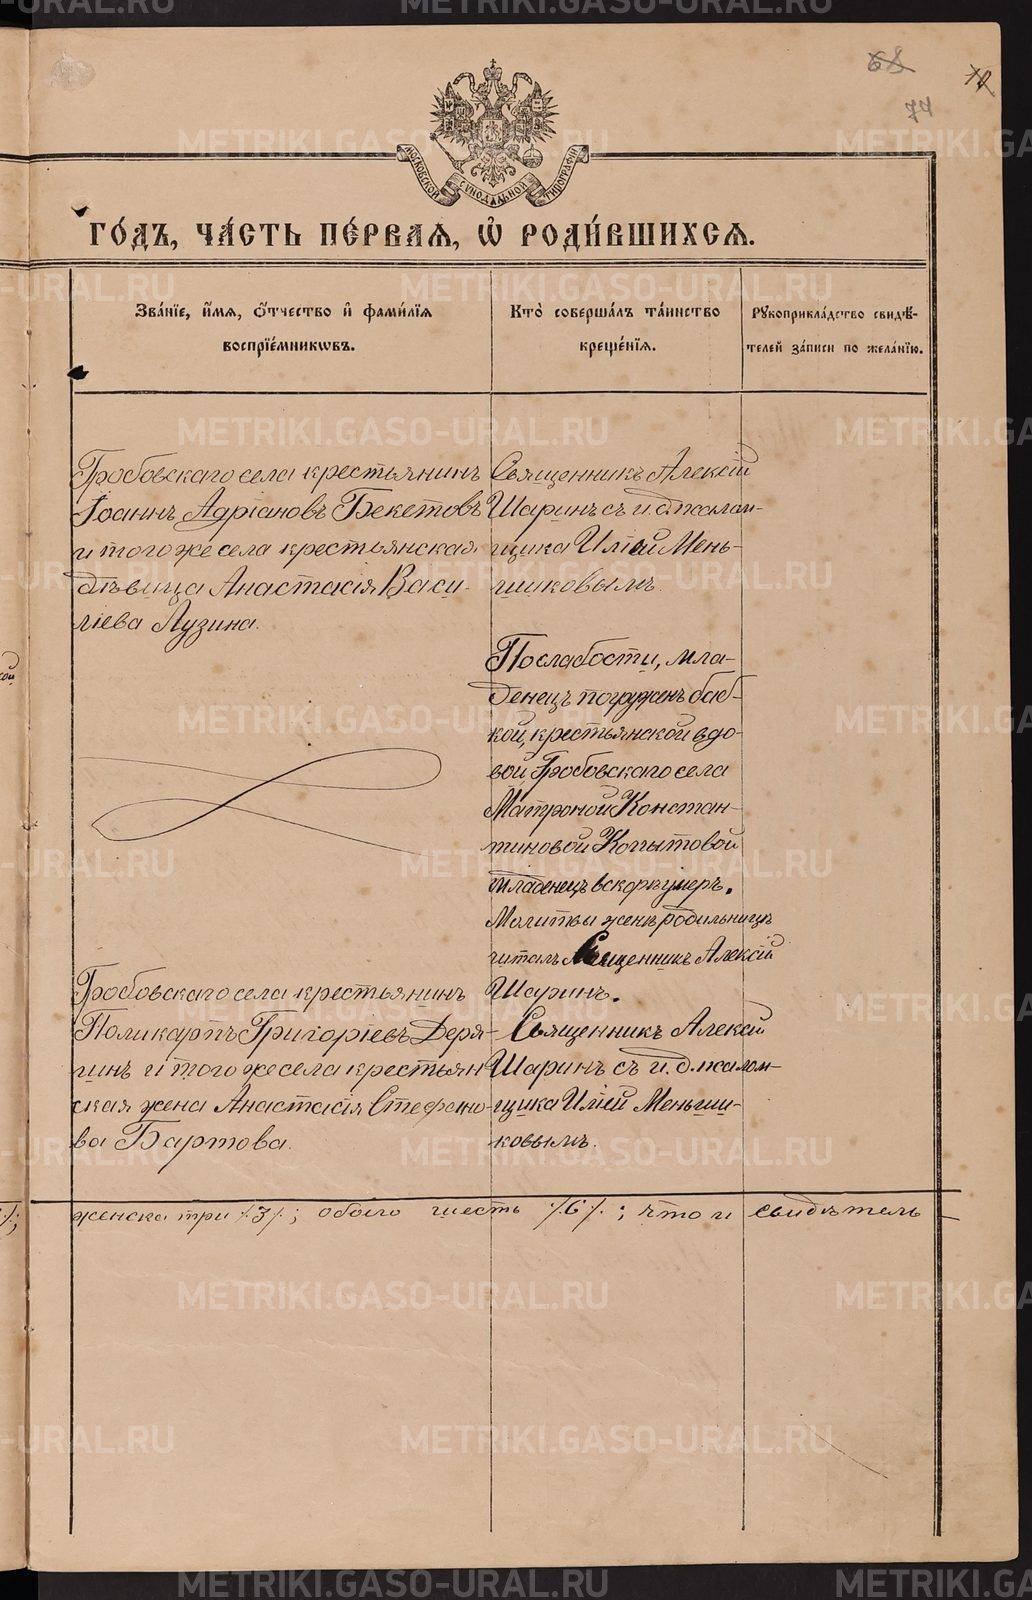 68
74
МОСКОВСКОЙ СѴНОДАЛЬНОЙ ТИПОГРАФІИ
ГО́ДЪ, ЧА́СТЬ ПЕ́РВАѦ, Ѡ҆ РОДИ́ВШИХСѦ.
Зва́нїе, и҆́мѧ, ѻ҆́тчество и҆ фами́лїѧ
воспрїе́мниковъ.
Кто̀ соверша́лъ та́инство
креще́нїѧ.
Рꙋкоприкла́дство свидѣ́-
телей за́писи по жела́нїю.
Гробовскаго села крестьянинъ
Іоаннъ Адріановъ Бекетовъ
и того же села крестьянская
дѣвица Анастасія Васи-
ліева Лузина.
Священникъ Алексій
Шаринъ съ и. д. псалом-
щика Иліей Мень-
шиковымъ.
По слабости, мла-
денецъ погруженъ баб-
кой, крестьянской вдо-
вой Гробовскаго села
Матроной Констан-
тиновой Копытовой
младенецъ вскорѣ умеръ.
Молитвы женѣ родильницѣ
читалъ Священникъ Алексій
Шаринъ.
Гробовскаго села крестьянинъ
Поликарпъ Григоріевъ Деря-
гинъ и того же села крестьян
ская жена Анастасія Стефано-
ва Бартова.
Священникъ Алексій
Шаринъ съ и. д. псалом-
щика Иліей Меньши-
ковымъ.
женска три /3/; обоего шесть /6/; что и свидѣтель
METRIKI.GASO-URAL.RU